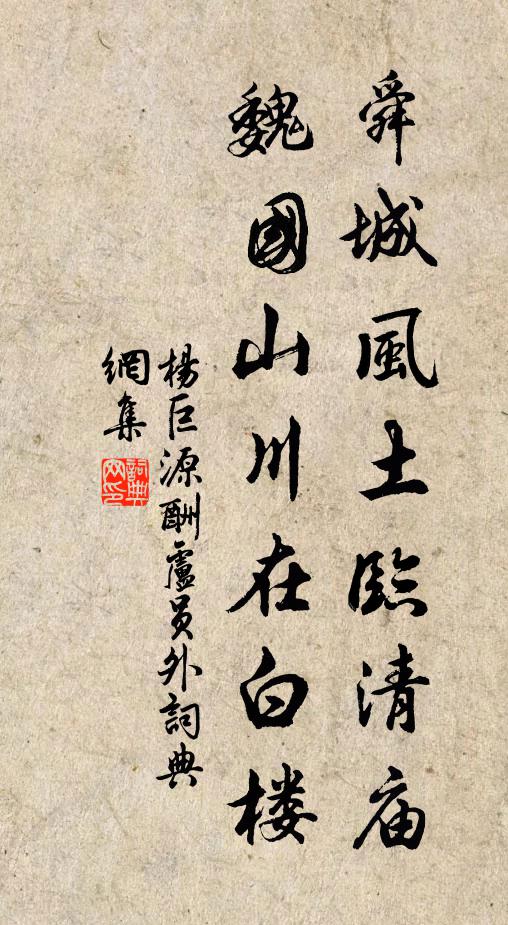 舜城風土臨清庙
魏國山川在白楼
楊巨源酬盧員外詞典
網集
詞典网印